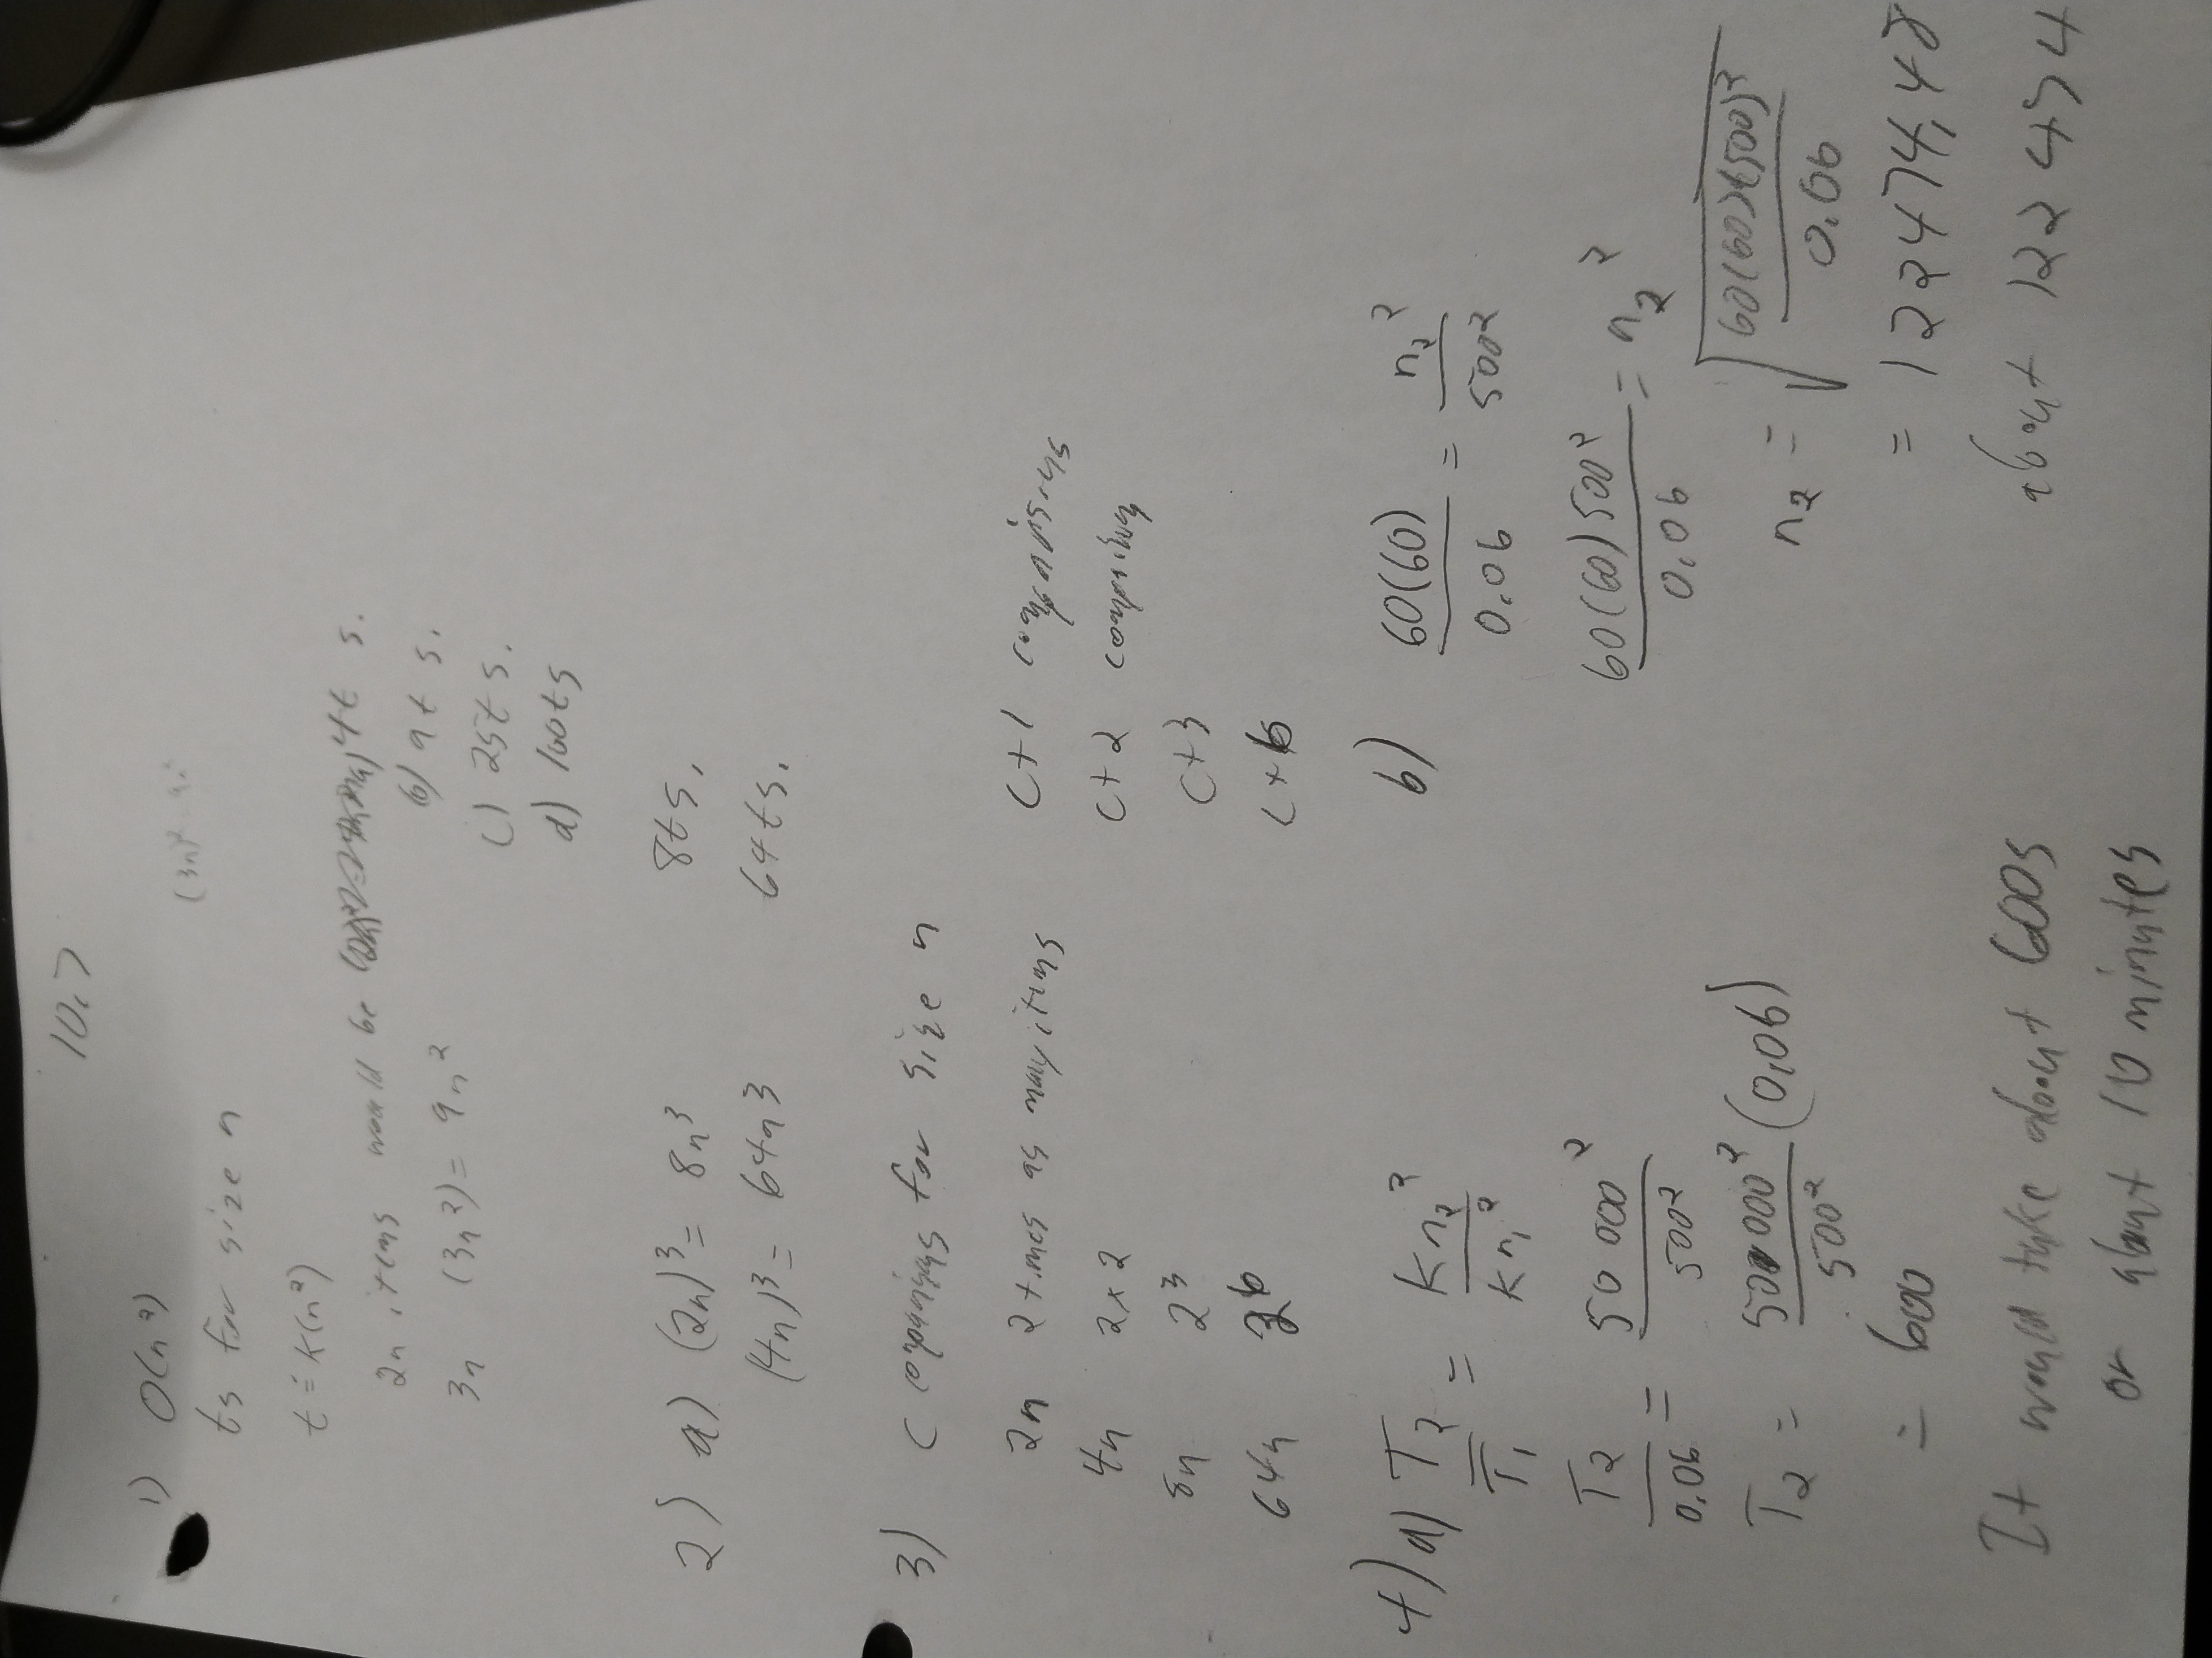 10.7
1) O(n²)
(3n)²
ts for size n
t = k(n²)
2n items would be 4t s.
b) 9t s.
3n (3n²) = 9n²
c) 25t s.
d) 100ts
2) a) (2n)³ = 8n³ 8ts.
(4n)³ = 64n³ 64ts.
3) C comparisons for size n
2n 2 times as many items C+1 comparisons
4n 2×2 C+2 comparisons
8n 2³ C+3
64n 2⁶ C+6
4) a) T₂/T₁ = Kn₂²/Kn₁²
T₂/0.06 = 50 000²/500²
T₂ = 50 000²/500² (0.06)
= 600
It would take about 600s
or about 10 minutes
b) 60(60)/0.06 = n₂²/500²
60(60)500²/0.06 = n₂²
n₂ = √(60(60)(500)²/0.06)
= 122474.48
about 122474